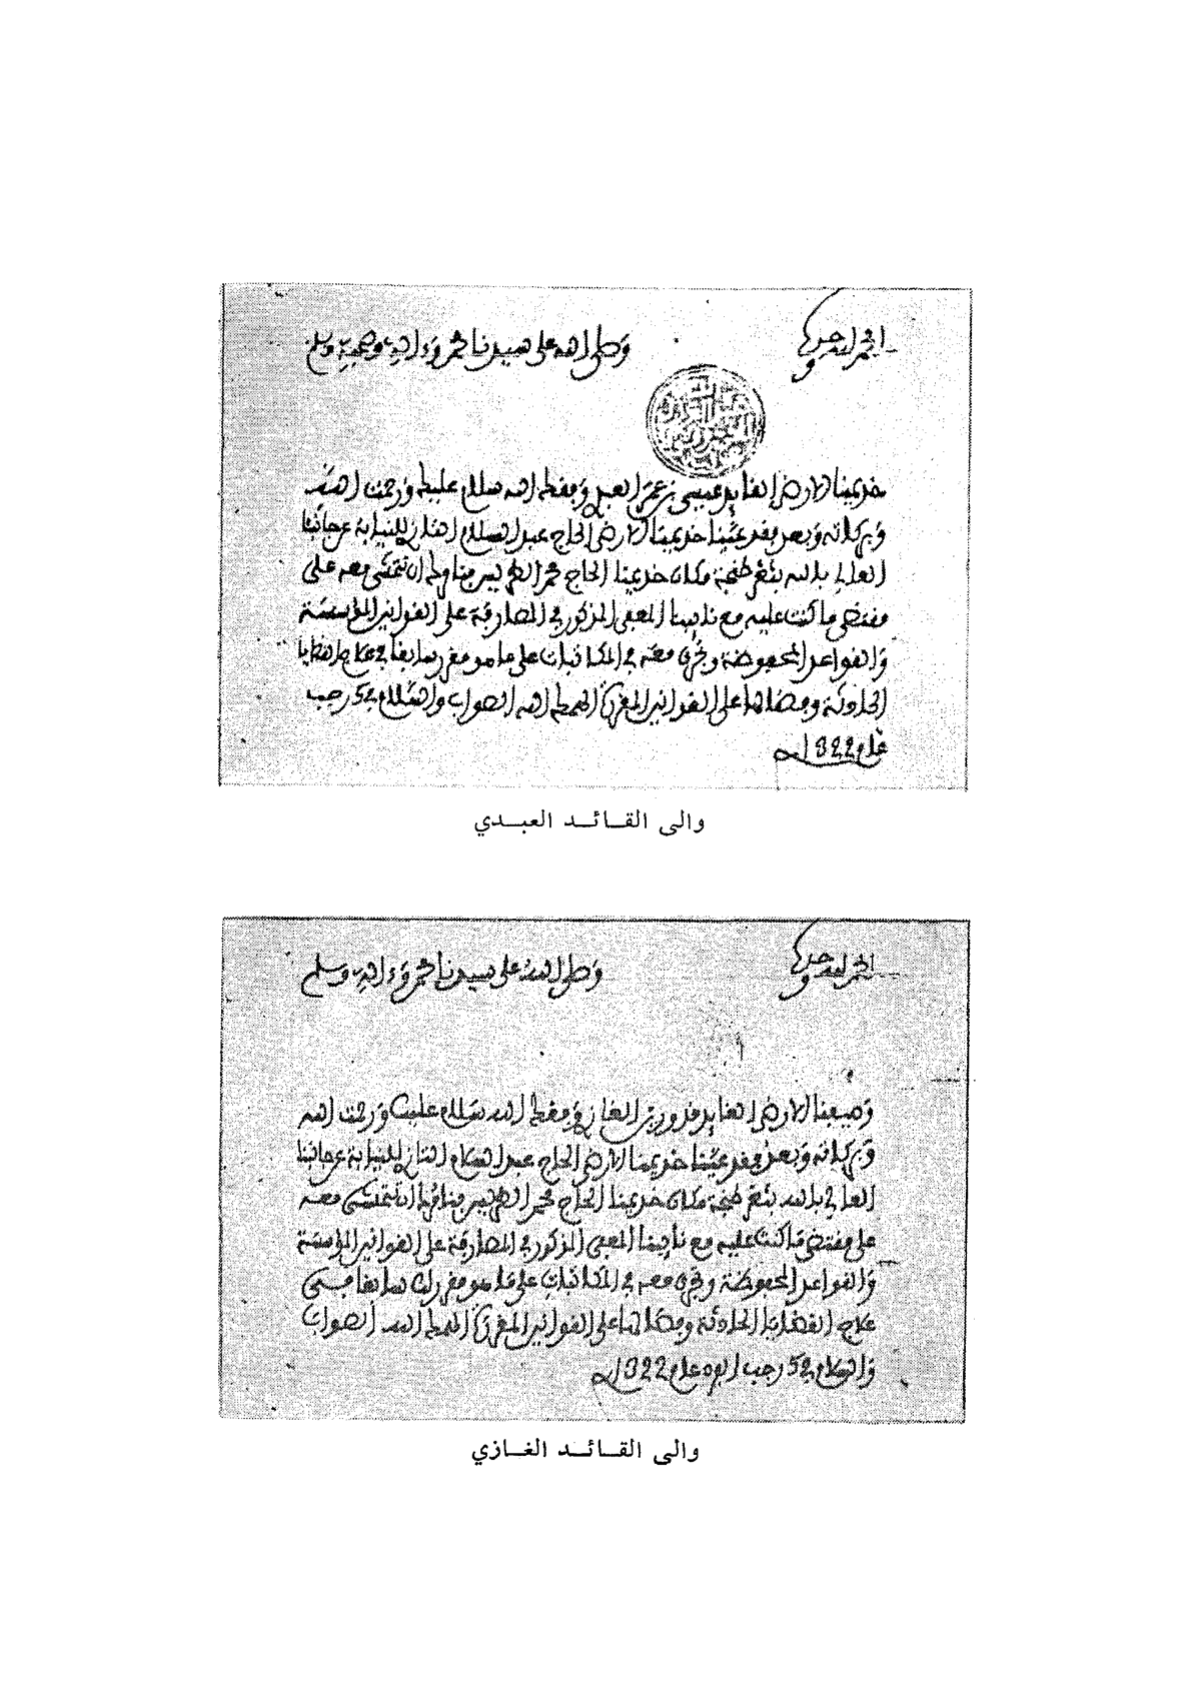 الحمد لله وحده
وصلى الله على سيدنا محمد وءاله وصحبه وسلم
خديمنا الارضى القايد عيسى بن عمر العبدي وفقك الله سلام عليك ورحمت الله
وبركاته وبعد فقد عيننا خديمنا الارضى الحاج عبد السلام التازي للنيابة عن جانبنا
العالي بالله بثغر طنجة مكان خديمنا الحاج محمد الطريس بيناولك ان تتمشى معه على
مقتضى ما كنت عليه مع نايبنا المعفى المذكور في المصارفة على القوانين المؤسسة
والقواعد المحفوظة وتجري معه في المكاتبات على ما هو مقرر سابقا في علاج القضايا
الحادثة وفضالها على القوانين المقررة الهمك الله الصواب والسلام في 25 رجب
عام 1322
والى القائد العبدي
الحمد لله وحده
وصلى الله على سيدنا محمد وءاله وسلم
وصيفنا الارضى القايد فدور بن الغازي وفقك الله سلام عليك ورحمت الله
وبركاته وبعد فقد عيننا خديمنا الارضى الحاج عبد السلام التازي للنيابة عن جانبنا
العالي بالله بثغر طنجة مكان خديمنا الحاج محمد الطريس ان تتمشى معه
على مقتضى ما كنت عليه مع نايبنا المعفى المذكور في المصارفة على القوانين المؤسسة
والقواعد المحفوظة وتجري معه في المكاتبات على ما هو مقرر لك سابقا في
علاج القضايا الحادثة وفضالها على القوانين المقررة الهمك الله الصواب
والسلام في 25 رجب الفرد عام 1322
والى القائد الغازي